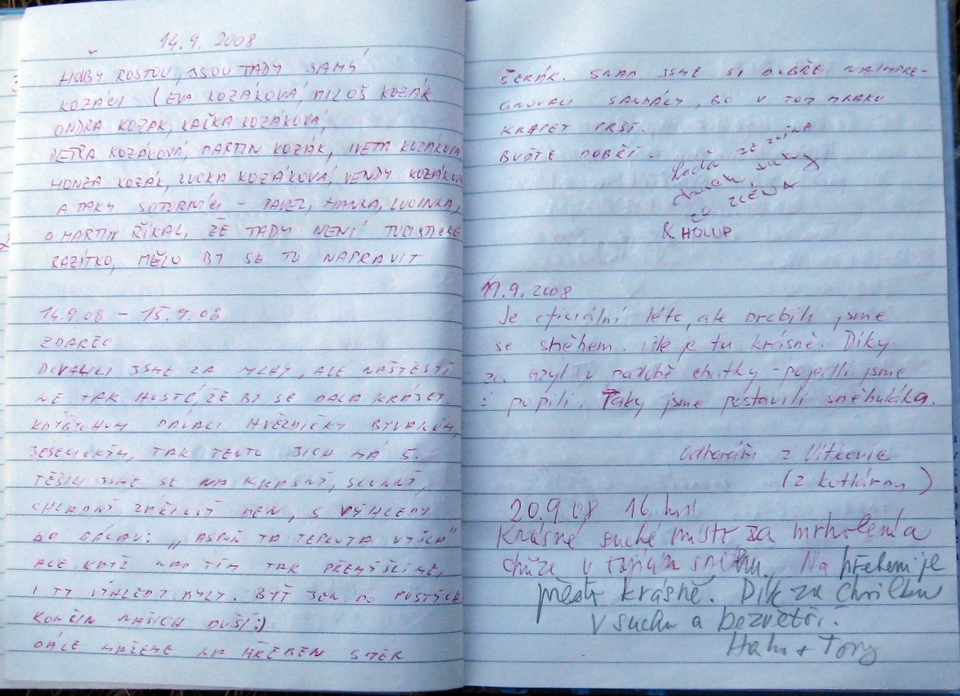 14.9.2008
HOUBY ROSTOU, JSOU TADY SAMÝ
KOZÁCI (EVA KOZÁKOVÁ, MILOŠ KOZÁK
ONDRA KOZÁK, KAČKA KOZÁKOVÁ,
PETRA KOZÁKOVÁ, MARTIN KOZÁK, IVETA KOZÁKOVÁ
HONZA KOZÁK, LUCKA KOZÁKOVÁ, VENDY KOZÁKOVÁ
A TAKY SATORNÍCI - PAVEL, HANKA, LUCINKA,
A MARTIN ŘÍKAL, ŽE TADY NENÍ TURISTICKÉ
RAZÍTKO, MĚLO BY SE TO NAPRAVIT
14.9.08 - 15.9.08
ZDAREC
JSME ZA MLHY, ALE NAŠTĚSTÍ
NE TAK HUSTÉ, ŽE BY SE DALA KRÁJET.
KDYBYCHOM DÁVALI HVĚZDIČKY BIVAKŮM,
JESENICKÝM, TAK TENTO JICH MÁ 5.
TĚŠILI JSME SE NA KRÁSNÝ, SLUNNÝ,
CHLADNÝ ZÁŘIJOVÝ DEN, S VÝHLEDY
DO OBLAK: „ASPOŇ TA TEPLOTA VYŠLA"
ALE KDYŽ NAD TÍM TAK PŘEMÝŠLÍME,
I TY VÝHLEDY BYLY. BYŤ JEN DO PUSTÝCH
KONČIN NAŠICH DUŠÍ:)
DÁLE MÍŘÍME NA HŘEBEN SMĚR
ŠERÁK. SNAD JSME SI DOBŘE NAIMPRE-
GNOVALI SANDÁLY, BO V TOM MRAKU
KRAPET PRŠÍ.
BUĎTE DOBŘÍ.
ZE
ZE
& HOLUP
19.9.2008
Je oficiální léto, ale brodili jsme
se sněhem. Ale je tu krásně. Díky
za azyl v podobě chatky - pojedli jsme
i popili. Taky jsme postavili sněhuláka.
Odboráři z Vítkovic
(z kotlárny)
20.9.08 16 hod
Krásné suché místo za mrholení a
chůze v sněhu. Na hřebeni je
přesto krásně. Dík za chvilku
v suchu a bezvětří.
Tony